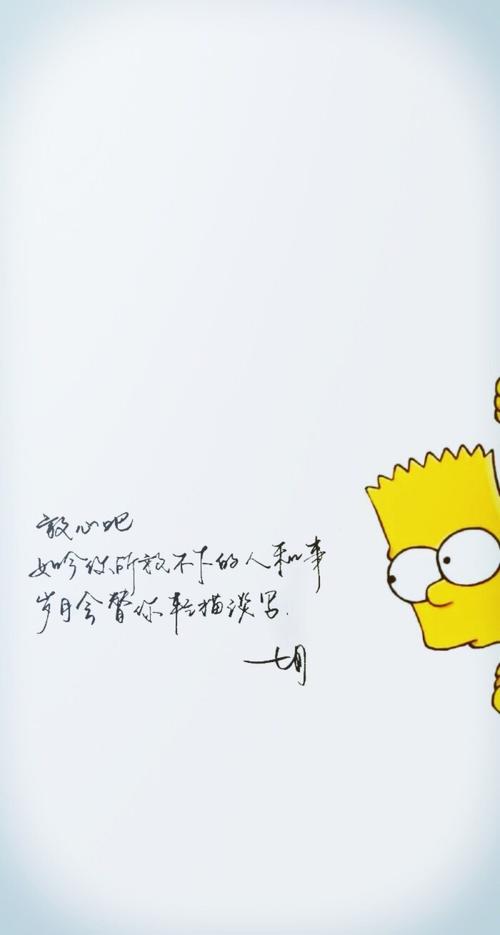 放心吧
如今你所放不下的人和事
岁月会替你轻描淡写.
七月